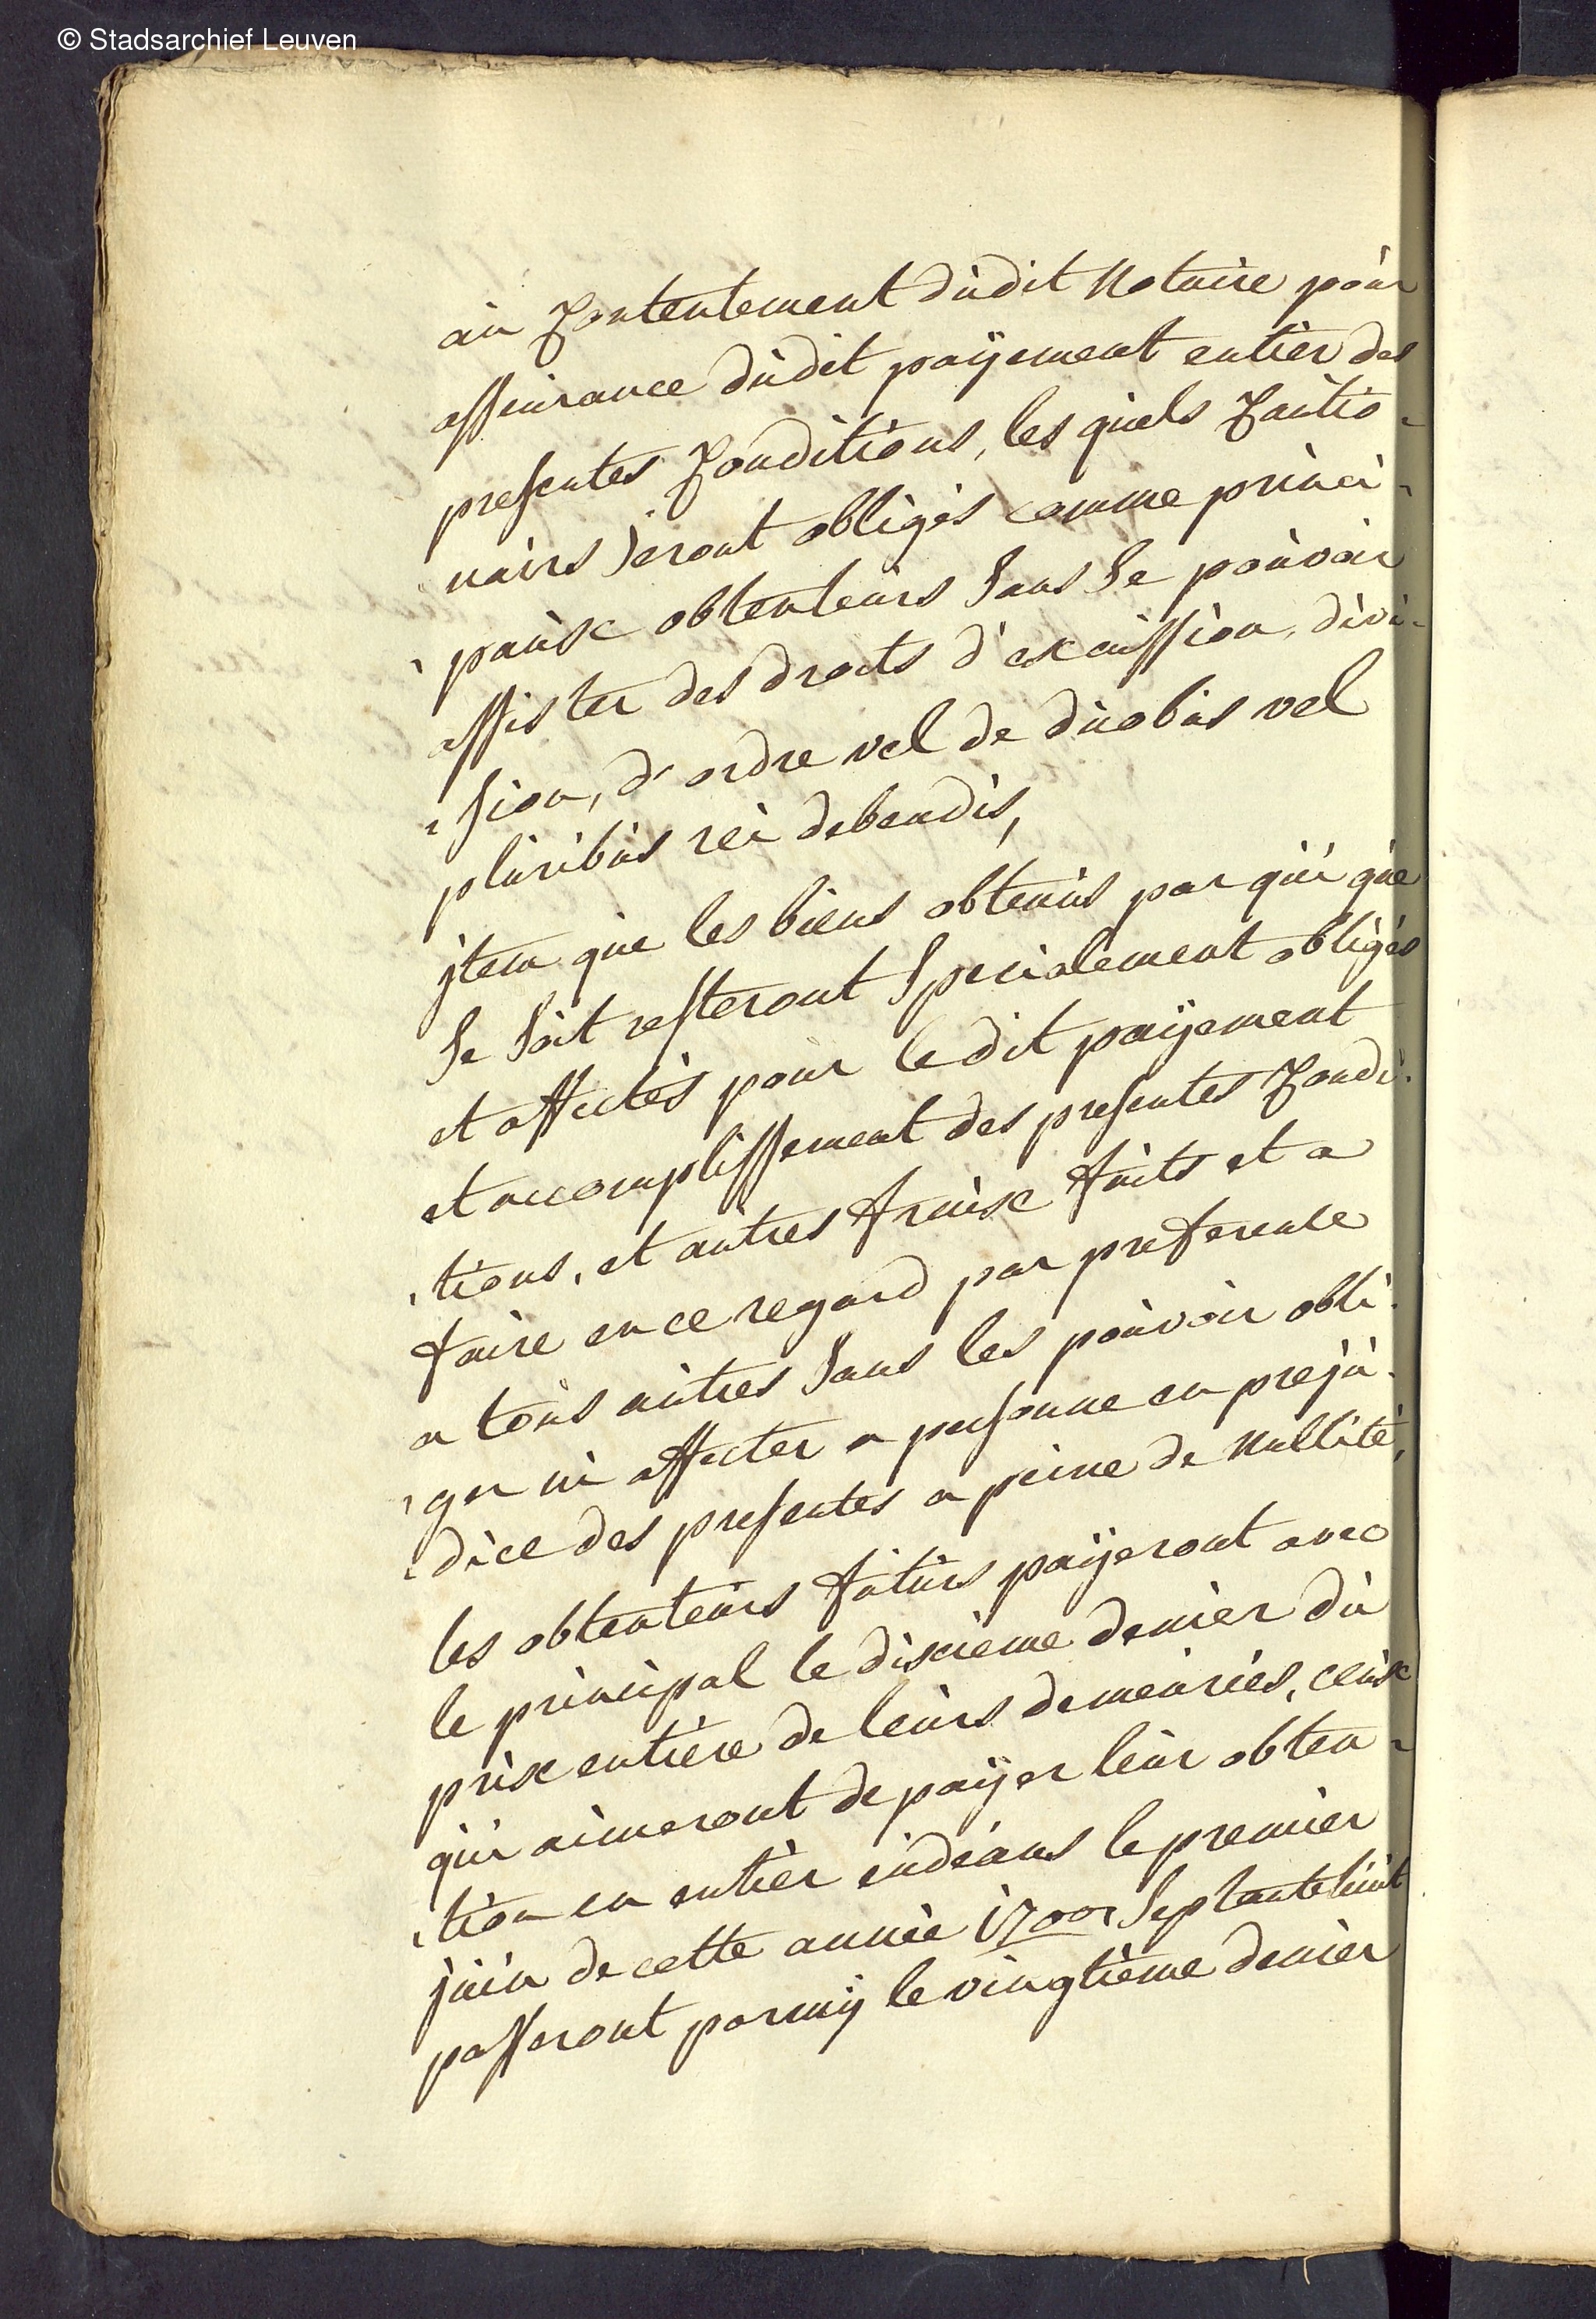 © Stadsarchief Leuven
au Contentement dudit Notaire pour
asseurance dudit paÿement entier des
presentes Conditions, les quels Cautio-
nairs seront obligés comme princi-
-paux obtenteurs sans se pouvoir
assister des droits d'excussion, divi-
-sion, d'ordre vel de duobus vel
pluribus rei debendis,
jtem que les biens obtenus par qui que
se soit resteront specialement obligés
et affectés pour le dit paÿement
et accomplissement des presentes Condi-
-tions, et autres fraix faits et a
faire en ce regard par preference
a tous autres sans les pouvoir obli-
-ger ni affecter a personne en preju-
-dice des presentes a peine de Nullité,
les obtenteurs futurs paÿeront avec
le principal le dixieme denier du
prix entière de leurs demeuries, ceux
qui aimeront de paÿer leur obten-
-tion en entier indéans le premier
juin de cette année 1700 Septantehuit
passeront parmÿ le vingtième denier